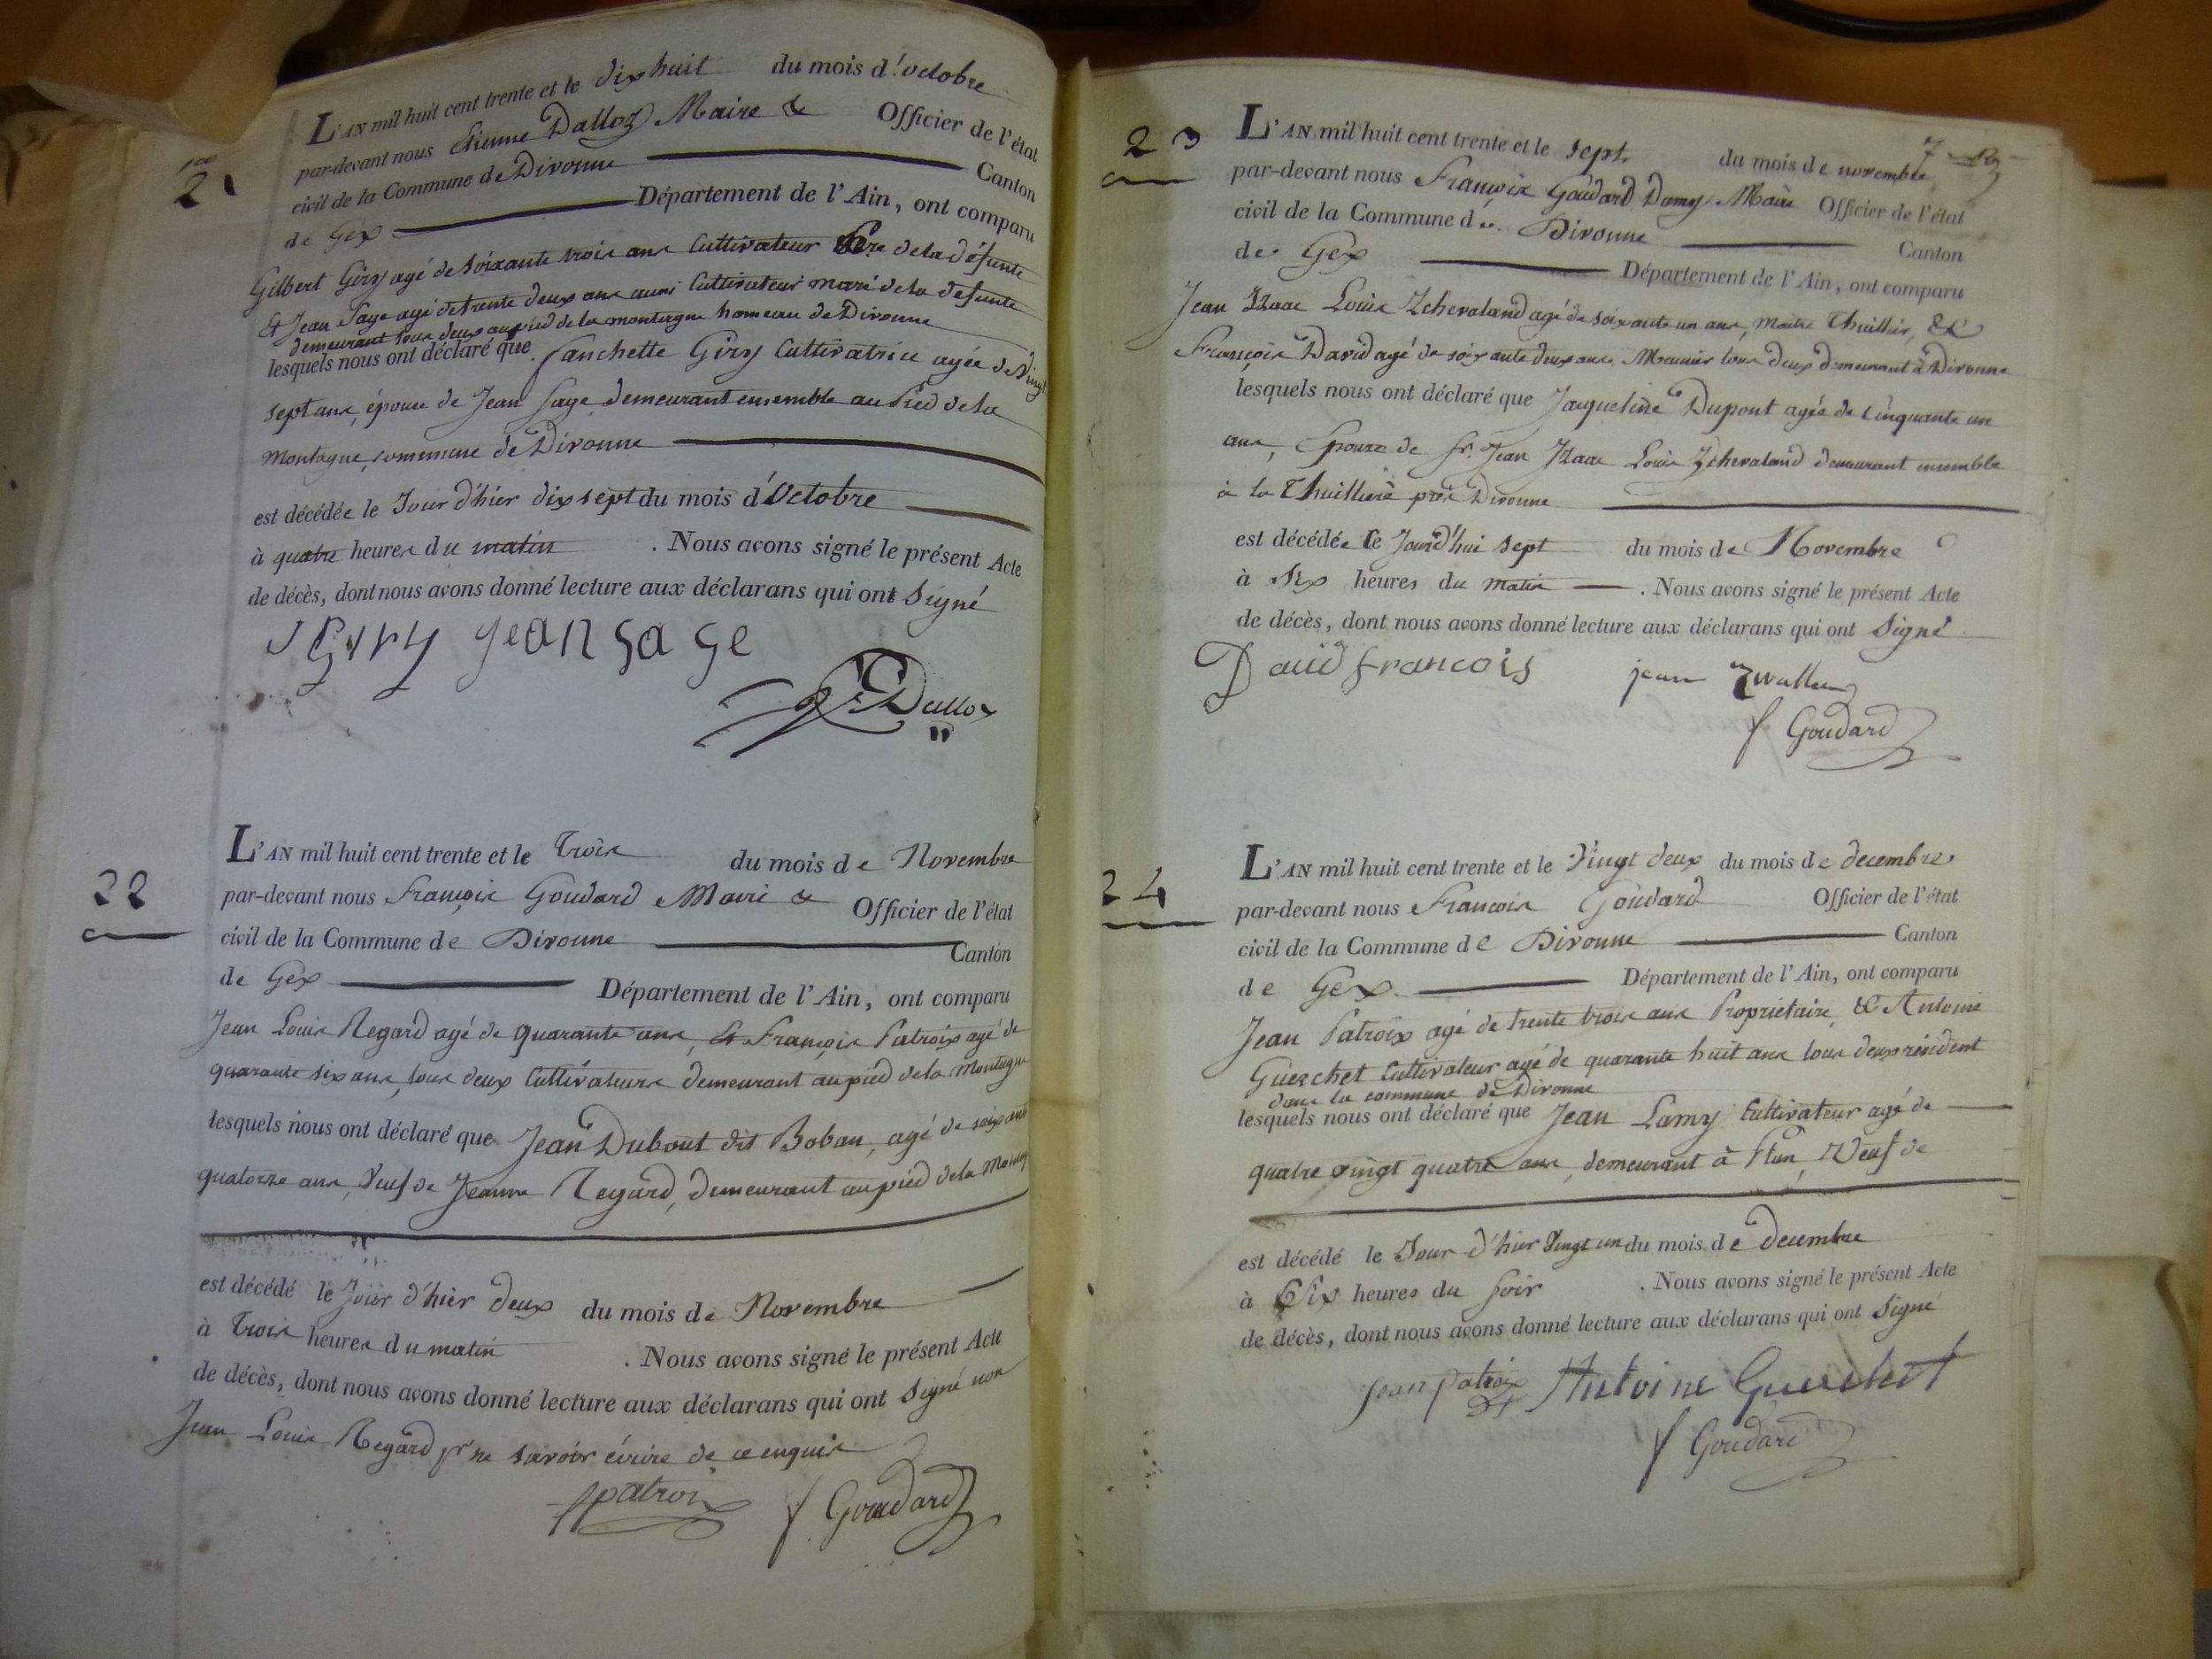 21
L'AN mil huit cent trente et le dix huit du mois d'octobre
par-devant nous Etienne Dalloz Maire & Officier de l'état
civil de la Commune de Divonne Canton
de Gex Département de l'Ain, ont comparu
Gilbert Giry agé de soixante trois ans Cultivateur Père de la défunte
Et Jean Sage agé de trente deux ans aussi Cultivateur mari de la défunte
demeurant tous deux au pied de la montagne hameau de Divonne
lesquels nous ont déclaré que fanchette Giry Cultivatrice agée de Vingt
sept ans, épouse de Jean Sage demeurant ensemble au Pied de la
Montagne, commune de Divonne
est décédée le Jour d'hier dix sept du mois d'Octobre
à quatre heures du matin . Nous avons signé le présent Acte
de décès, dont nous avons donné lecture aux déclarans qui ont Signé
Giry jean sage
Dalloz
22
L'AN mil huit cent trente et le Trois du mois de Novembre
par-devant nous François Goudard Maire & Officier de l'état
civil de la Commune de Divonne Canton
de Gex Département de l'Ain, ont comparu
Jean Louis Regard agé de quarante ans, Et François Patroix agé de
quarante six ans, tous deux Cultivateurs demeurant au pied de la Montagne
lesquels nous ont déclaré que Jean Dubout dit Boban, agé de soixante
quatorze ans, Veuf de Jeanne Regard, demeurant au pied de la
est décédé le Jour d'hier deux du mois de Novembre
à Trois heures du matin . Nous avons signé le présent Acte
de décès, dont nous avons donné lecture aux déclarans qui ont Signé non
Jean Louis Regard pr ne savoir écrire de ce enquis
fpatroix f Goudard
23
L'AN mil huit cent trente et le sept du mois de novembre
par-devant nous François Goudard Damy Maire Officier de l'état
civil de la Commune de Divonne Canton
de Gex Département de l'Ain, ont comparu
Jean Izaac Louis Zchevaland agé de soixante un ans, Maitre Thuillier, &
François David agé de soixante deux ans Meunier tous deux demeurant à Divonne
lesquels nous ont déclaré que Jaqueline Dupont agée de Cinquante un
ans, Epouze de Sr Jean Izaac Louis Zchevaland demeurant ensemble
à la Thuilliere près Divonne
est décédée le Jourd'hui sept du mois de Novembre
à Six heures du matin . Nous avons signé le présent Acte
de décès, dont nous avons donné lecture aux déclarans qui ont Signé
David francois jean
f Goudard
24
L'AN mil huit cent trente et le Vingt deux du mois de decembre
par-devant nous Francois Goudard Officier de l'état
civil de la Commune de Divonne Canton
de Gex Département de l'Ain, ont comparu
Jean Patroix agé de trente trois ans Propriétaire, & Antoine
Guerchet Cultivateur agé de quarante huit ans tous deux résident
dans la commune de Divonne
lesquels nous ont déclaré que Jean Lamy Cultivateur agé de
quatre vingt quatre ans, demeurant à Plan, Veuf de
est décédé le Jour d'hier Vingt un du mois de decembre
à Six heures du soir . Nous avons signé le présent Acte
de décès, dont nous avons donné lecture aux déclarans qui ont Signé
jean patroix Antoine Guerchet
f Goudard